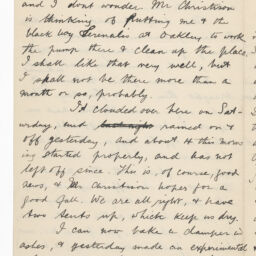 and I don't wonder. Mr Christison
is thinking of putting me & the
black boy at Oakley to work
the pump there & clean up the place.
I shall like that very well, but
I shall not be there more than a
month or so, probably.
It clouded over here on Sat-
urday, and last night rained on &
off yesterday, and about 4 this morn
ing started properly, and has not
left off since. This is, of course, good
news, & Mr Christison hopes for a
good fall. We are all right, & have
two tents up, which keep us dry.
I can now bake a damper in
ashes, & yesterday made an experimental